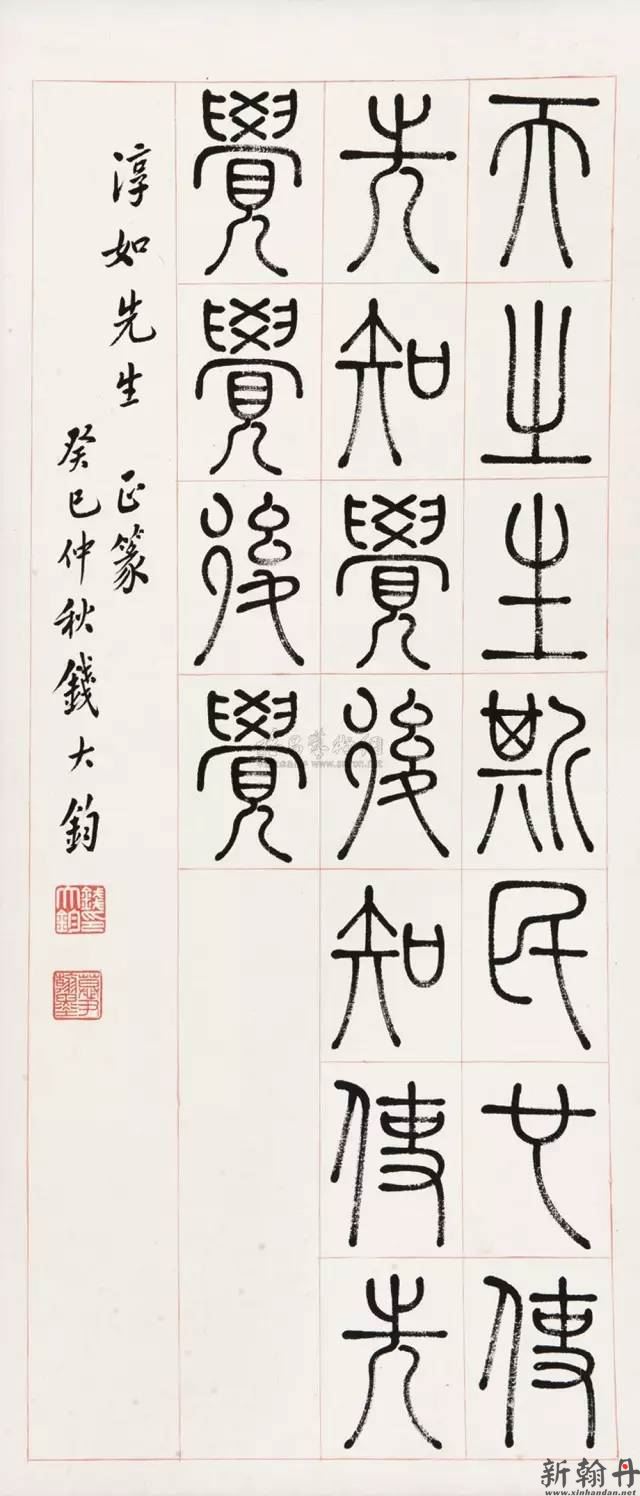 天之生斯民也使
先知覺後知使先
覺覺後覺
淳如先生 正篆
癸巳仲秋錢大鈞
錢大鈞印
慕尹翰墨
新翰丹
www.xinhandan.net